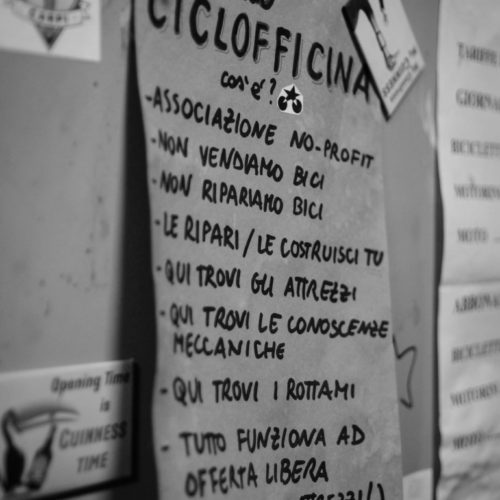 CICLOFFICINA
cos'è?
- ASSOCIAZIONE NO-PROFIT
- NON VENDIAMO BICI
- NON RIPARIAMO BICI
- LE RIPARI/LE COSTRUISCI TU
- QUI TROVI GLI ATTREZZI
- QUI TROVI LE CONOSCENZE
MECCANICHE
- QUI TROVI I ROTTAMI
- TUTTO FUNZIONA AD
OFFERTA LIBERA
Opening Time
is
GUINNESS
TIME
TARIFFE
MOTO